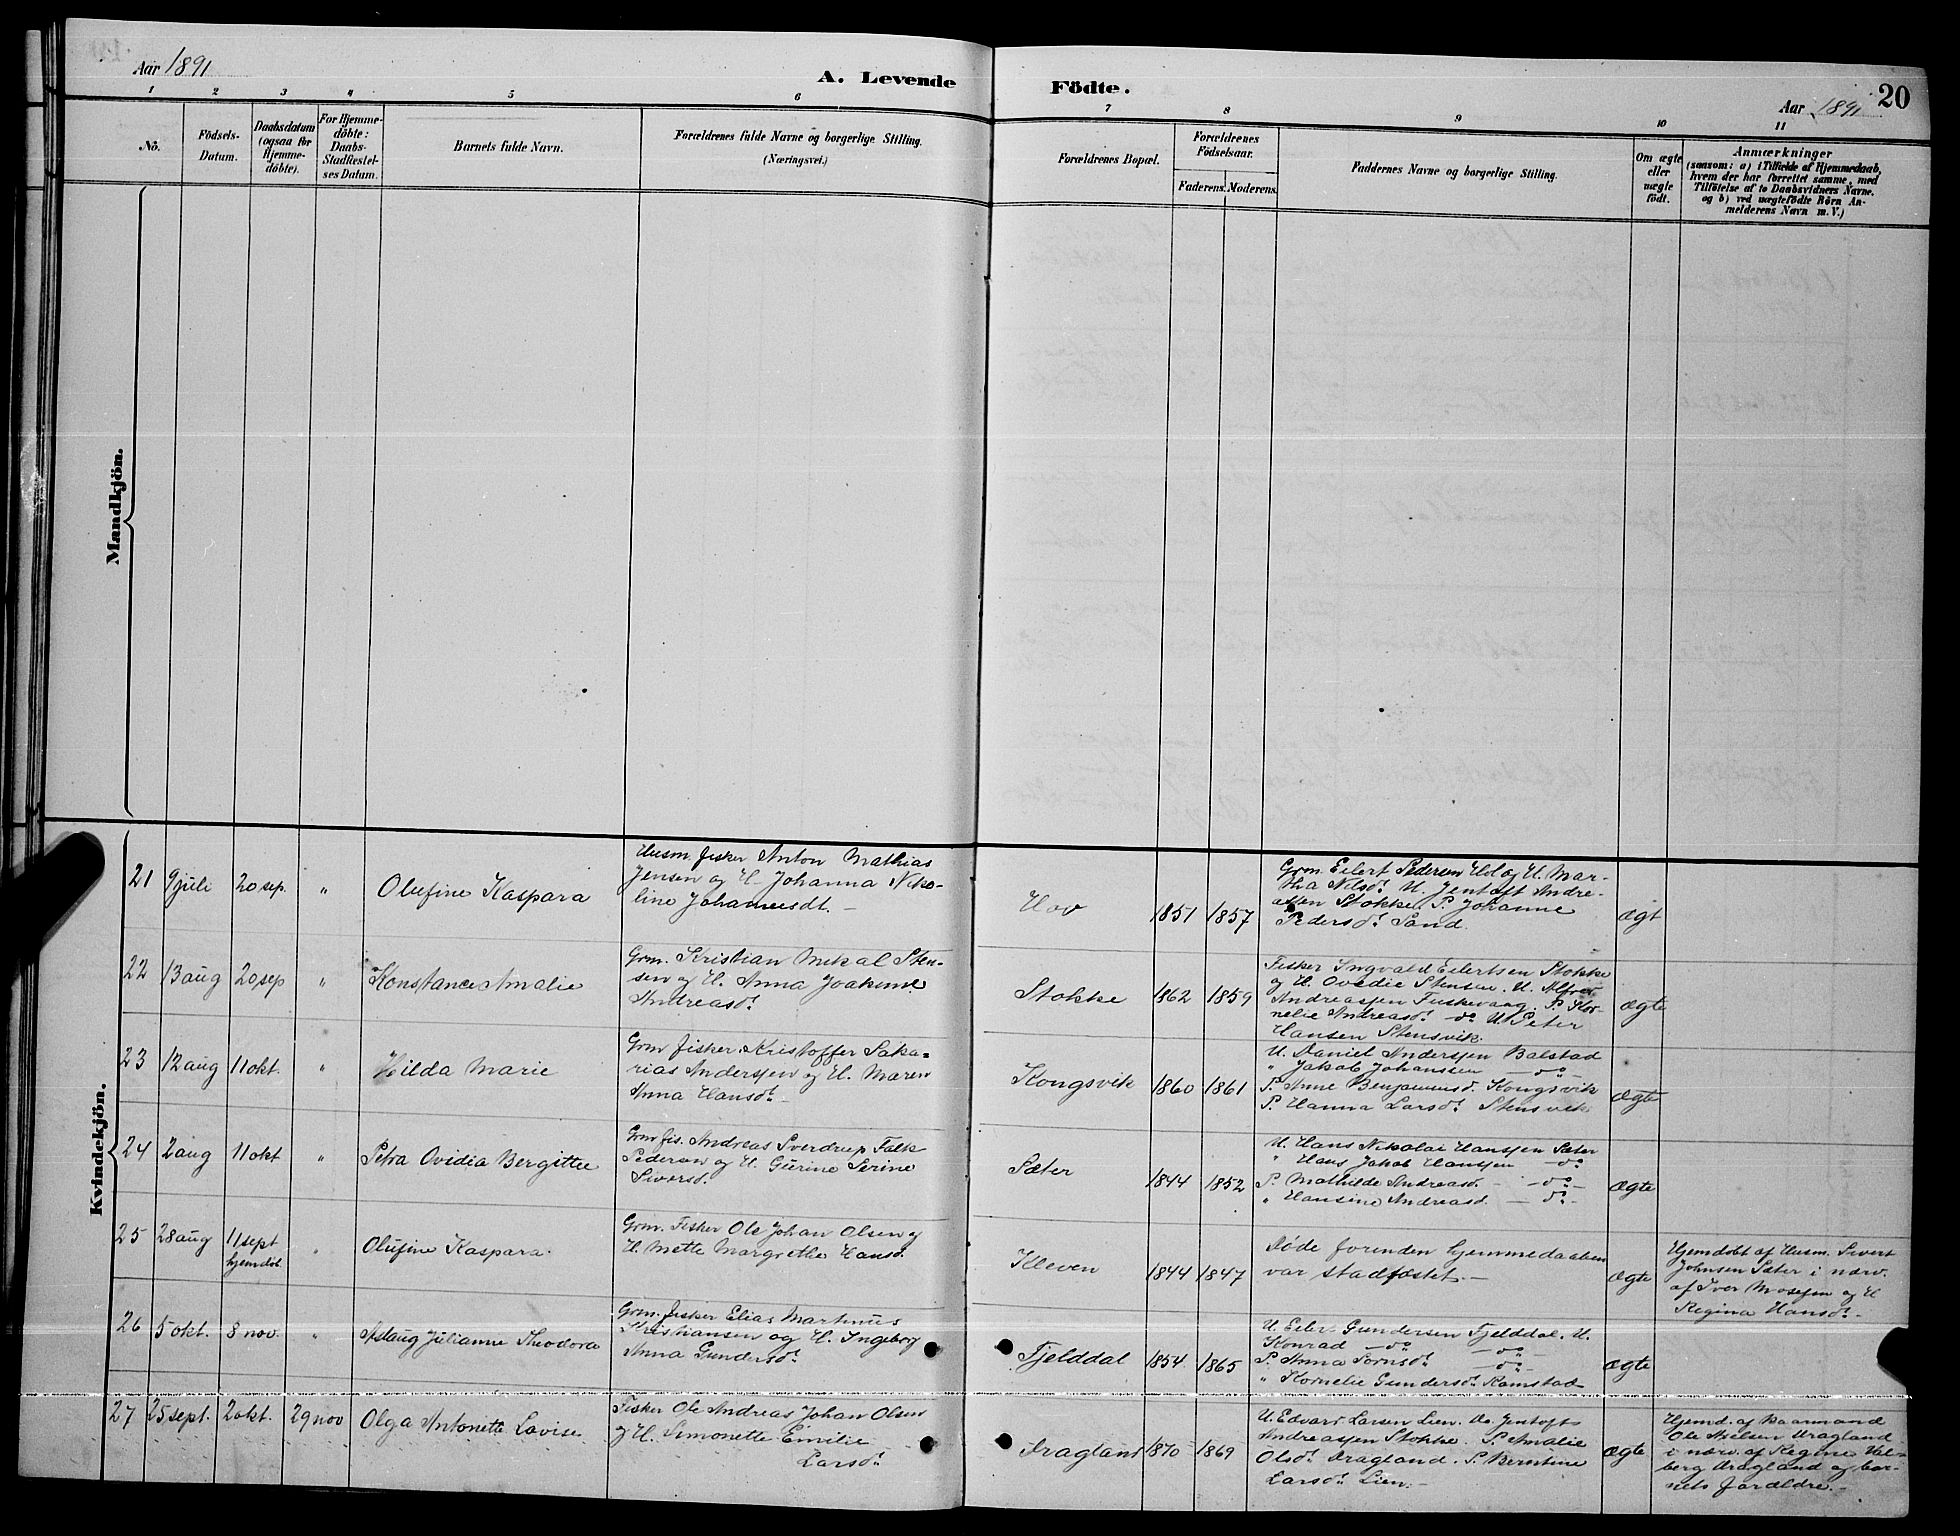 Aar 1891
A. Levende Födte.
Aar 1891
20
1 2 3 4 5 6 7 8 9 10 11
No.
Födsels-
Datum.
Daabsdatum
(ogsaa for
Hjemme-
döbte).
For Hjemme-
döbte:
Daabs-
Stadfæstel-
ses Datum.
Barnets fulde Navn.
Forældrenes fulde Navne og borgerlige Stilling.
(Næringsvei.)
Forældrenes Bopæl.
Forældrenes
Födselsaar.
Faderens. Moderens.
Faddernes Navne og borgerlige Stilling.
Om ægte
eller
uægte
födt.
Anmærkninger
(saasom: a) i Tilfælde af Hjemmedaab,
hvem der har forrettet samme, med
Tilföielse af to Daabsvidners Navne.
og b) ved uægtefödte Börn An-
melderens Navn m. V.)
Mandkjön.
Kvindekjön.
21 9 juli 20 sep. " Olufine Kaspara
Husm. fisker Anton Mathias
Jensen og H. Johanna Niko-
line Johannesdt. -
Hov 1851 1857
Grm. Eilert Pedersen Hol og H. Mar-
tha Nilsdt. U. Jentoft Andre-
assen Stokke. P. Johanne
Pedersdt. Sand.
ægt
22 13 aug 20 sep " Konstance Amalie
Grm. Kristian Mikal Sten-
sen og H. Anna Joakime
Andreasdt.
Stokke 1862 1859
Fisker Ingvald Eilertsen Stokke
og H. Ovedie Stensen. U. Alfred
Andreassen Fuskevaag. P. Kor-
nelie Andreasdt. do U. Peter
Hansen Stensvik.
ægte
23 12 aug 11 okt. " Hilda Marie
Grm fisker Kristoffer Saka-
rias Anderssen og H. Maren
Anna Hansdt. -
Kongsvik 1860 1861
U. Daniel Anderssen Balstad
" Jakob Johanssen - do -
P. Anne Benjaminsd. Kongsvik
P. Hanna Larsdt. Stensvik
ægte
24 2 aug 11 okt " Petra Ovidia Bergitte
Grm fis. Andreas Sverdrup Falk
Pedersen og H. Gurine Serine
Siversd.
Sæter 1844 1852
U. Hans Nikolai Hanssen Sæter
" Hans Jakob Hanssen - do
P. Mathilde Andreasd. - do -
" Hansine Andreasd. - do -
ægte
25 28 aug 11 sept
hjemdöbt " Olufine Kaspara.
Grm. Fisker Ole Johan Olsen og
H. Mette Margrethe Hansd.
Kleven 1844 1847
Døde forinden hjemmedaaben
var stadfæstet. -
ægte
Hjemdöbt af Husm. Sivert
Johnsen Sæter i nærv.
af Iver Mosesen og H
Regina Hansdt. -
26 5 okt. 8 nov. " Aslaug Julianne Theodora
Grm. fisker Elias Martinus
Kristiansen og H. Ingeborg
Anna Gundersdt.
Fjelddal 1854 1865
U. Eiler Gundersen Fjelddal. U.
Konrad - do - do -
P. Anna Sørnsdt. - do -
" Kornelie Gundersdt. Ramstad
ægte
27 25 sept. 2 okt. 29 nov Olga Antonette Lovise
Fisker Ole Andreas Johan Olsen
og H. Simonette Emilie
Larsdt.
Dragland 1870 1869
U. Edvard Larsen Lien. Do Jentoft
Andreassen Stokke. P. Amalie
Olsdt. Dragland. P. Berntine
Larsdt. Lien. -
ægte
Hjemd. af Baarmand
Ole Nielsen Dragland
i nærv. af Regine Val-
berg Dragland og bar-
nets forældre. -